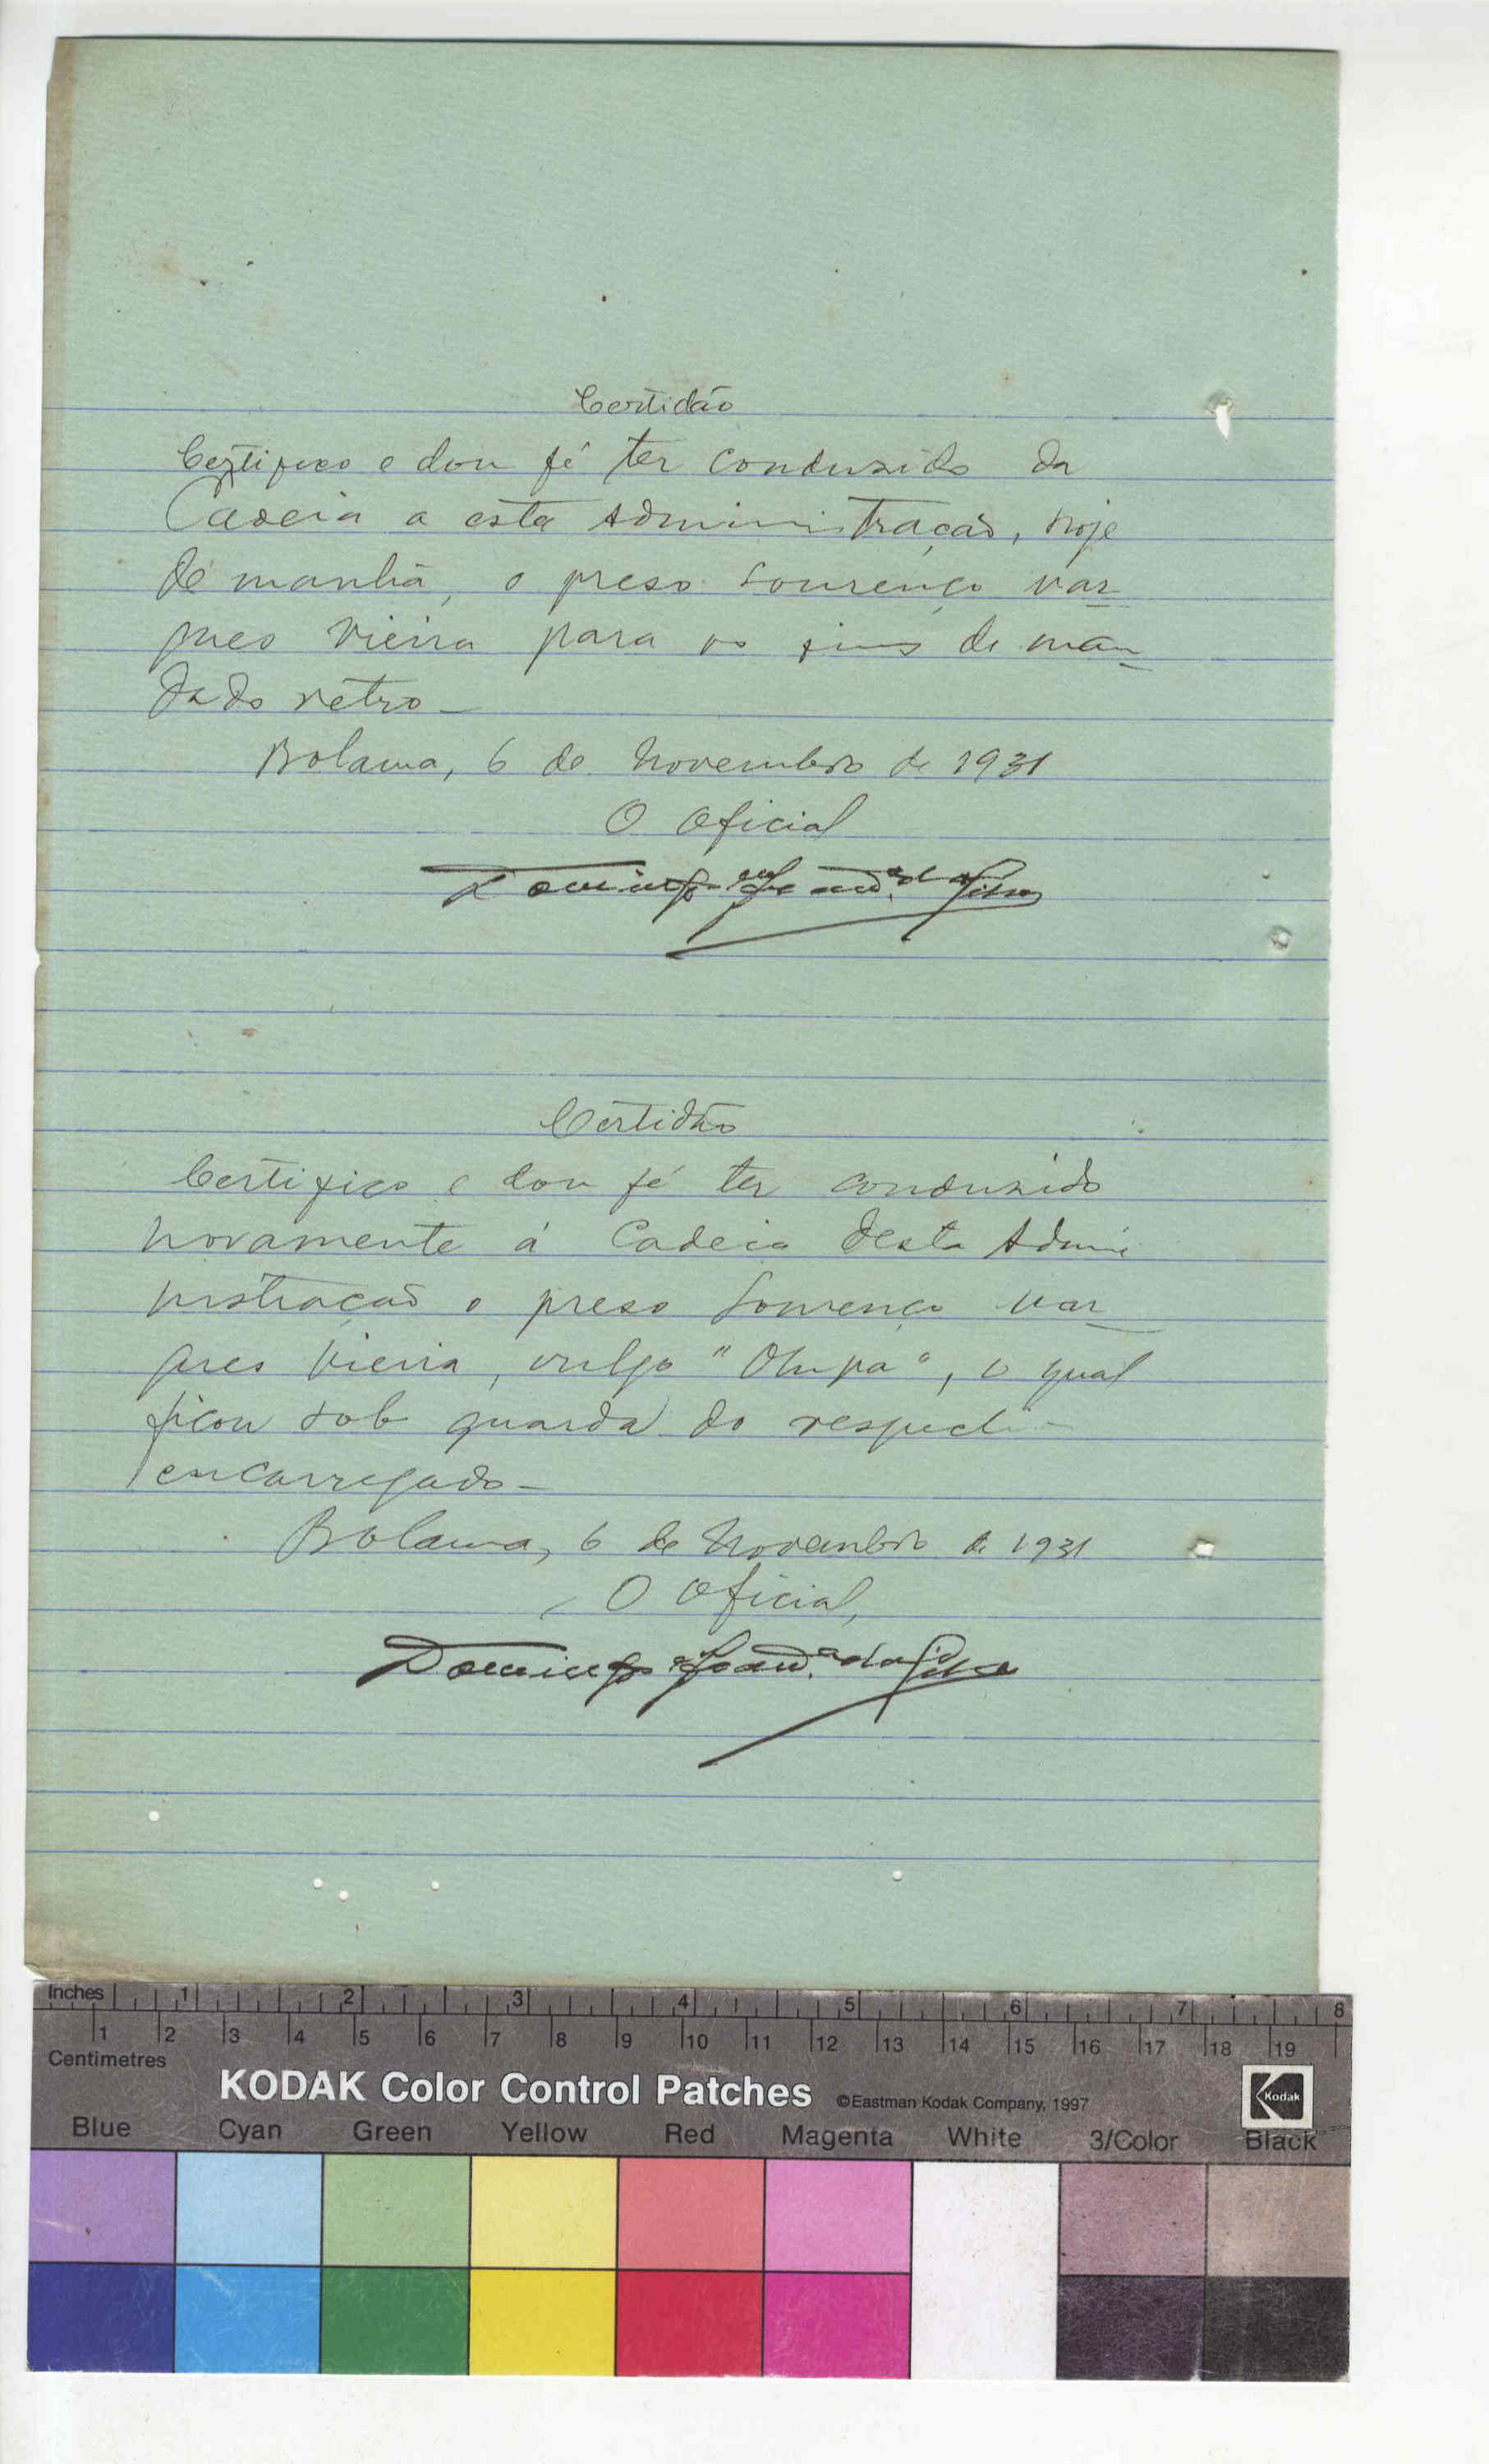 Certidão
Certifico e dou fé ter conduzido da
Cadeia a esta Administração, hoje
de manhã, o preso Lourenço Var-
ques Vieira para os fins de man-
dado retro -
Bolama, 6 de Novembro de 1931
O Oficial
Domingos da Silva
Certidão
Certifico e dou fé ter conduzido
novamente á Cadeia desta Admi
nistração o preso Lourenço Var-
ques Vieira, vulgo "Olupa", o qual
ficou sob guarda do
encarregado -
Bolama, 6 de Novembro de 1931
O Oficial,
Domingos da Silva
Inches 1 2 3 4 5 6 7 8
1 2 3 4 5 6 7 8 9 10 11 12 13 14 15 16 17 18 19
Centimetres
KODAK Color Control Patches ©Eastman Kodak Company, 1997 Kodak
Blue Cyan Green Yellow Red Magenta White 3/Color Black